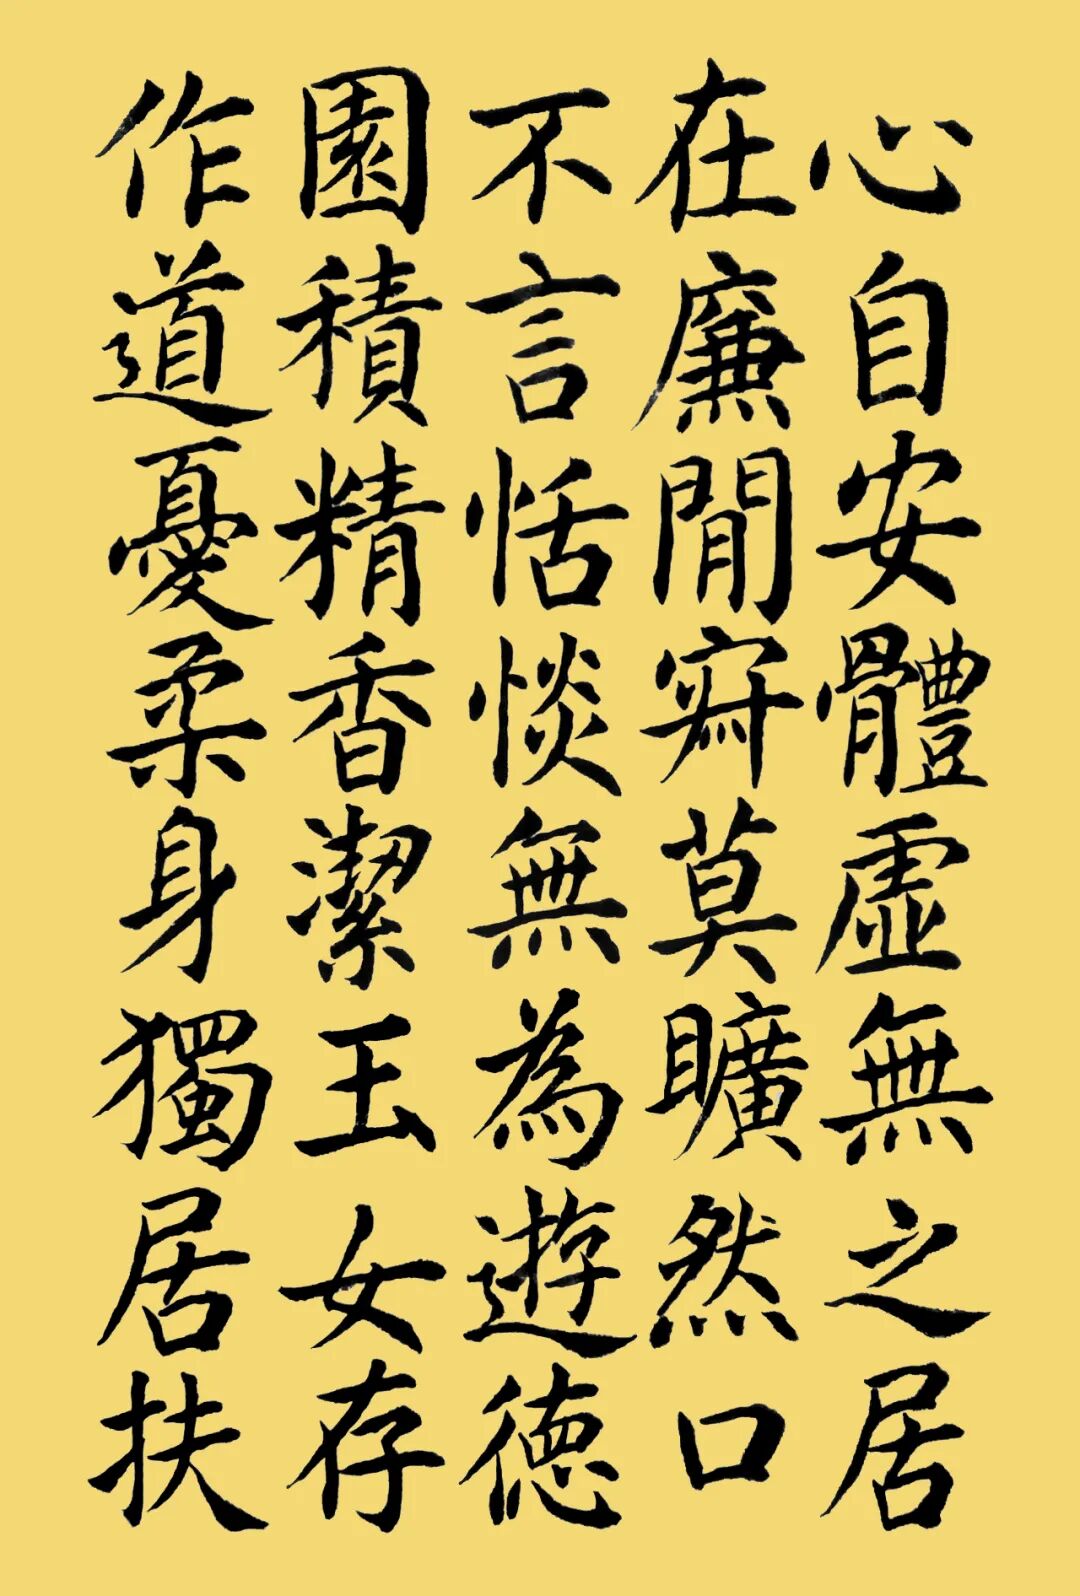 心自安體虛無之居
在廉閒寂莫曠然口
不言恬惔無為遊德
園積精香潔玉女存
作道憂柔身獨居扶